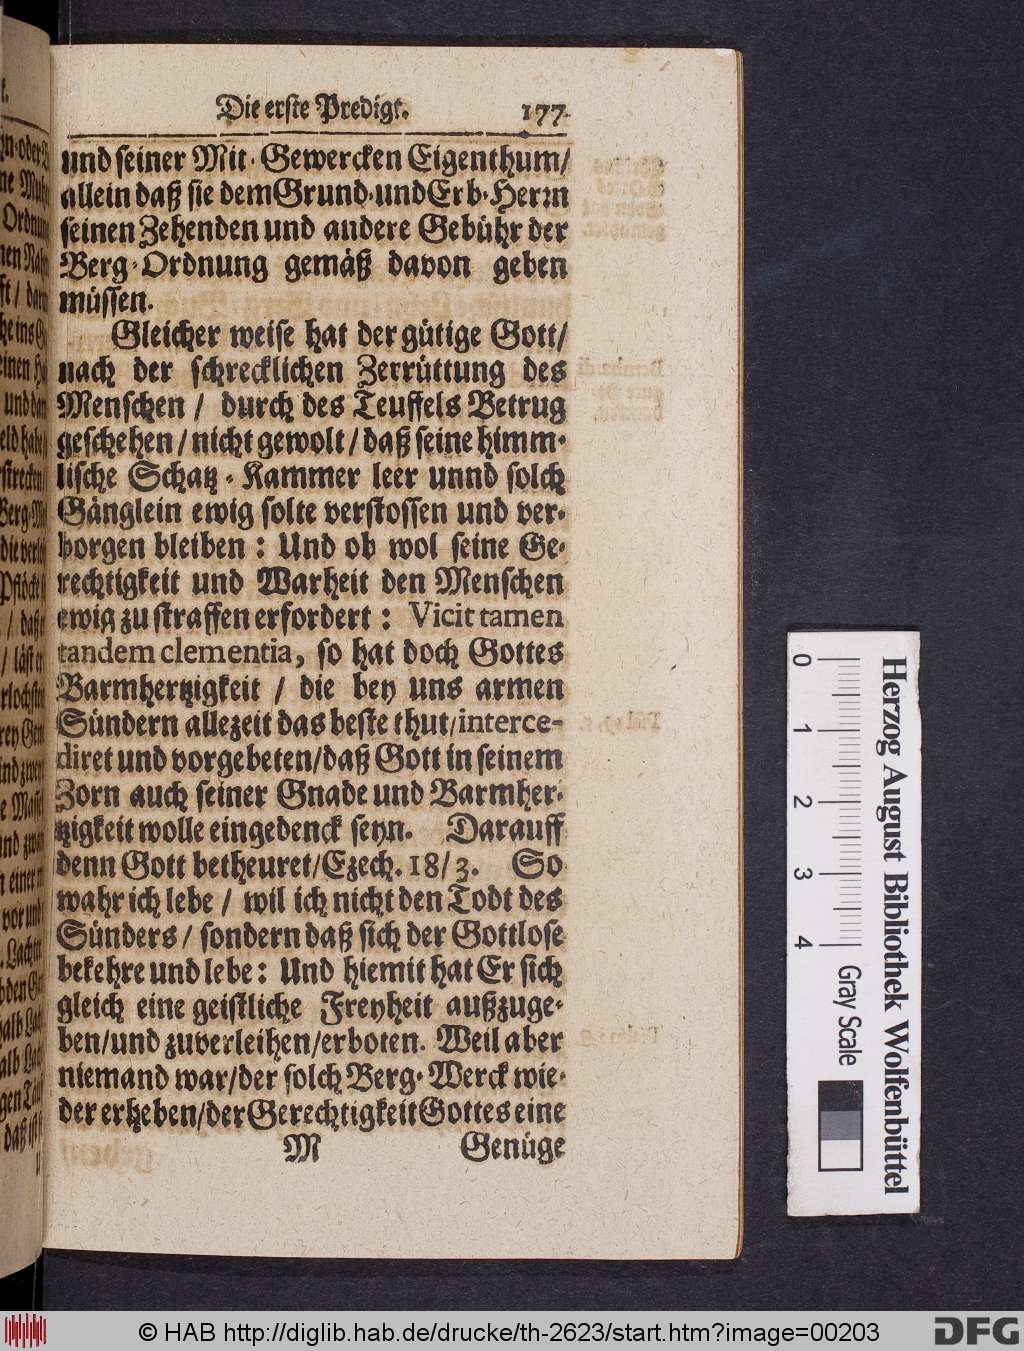 Die erste Predigt. 177.
und seiner Mit-Gewercken Eigenthum/
allein daß sie dem Grund-und Erb-Herrn
seinen Zehenden und andere Gebühr der
Berg-Ordnung gemäß davon geben
müssen.
Gleicher weise hat der gütige Gott/
nach der schrecklichen Zerrüttung des
Menschen / durch des Teuffels Betrug
geschehen / nicht gewolt / daß seine himm-
lische Schatz-Kammer leer unnd solch
Gänglein ewig solte verstossen und ver-
borgen bleiben : Und ob wol seine Ge-
rechtigkeit und Warheit den Menschen
ewig zu straffen erfordert : Vicit tamen
tandem clementia, so hat doch Gottes
Barmhertzigkeit / die bey uns armen
Sündern allezeit das beste thut/interce-
diret und vorgebeten/daß Gott in seinem
Zorn auch seiner Gnade und Barmher-
tzigkeit wolle eingedenck seyn. Darauff
denn Gott betheuret/Ezech. 18/3. So
wahr ich lebe / wil ich nicht den Todt des
Sünders / sondern daß sich der Gottlose
bekehre und lebe: Und hiemit hat Er sich
gleich eine geistliche Freyheit außzuge-
ben/und zuverleihen/erboten. Weil aber
niemand war/der solch Berg-Werck wie-
der erheben/der Gerechtigkeit Gottes eine
M Genüge
Herzog August Bibliothek Wolfenbüttel
0 1 2 3 4 Gray Scale
© HAB http://diglib.hab.de/drucke/th-2623/start.htm?image=00203
DFG